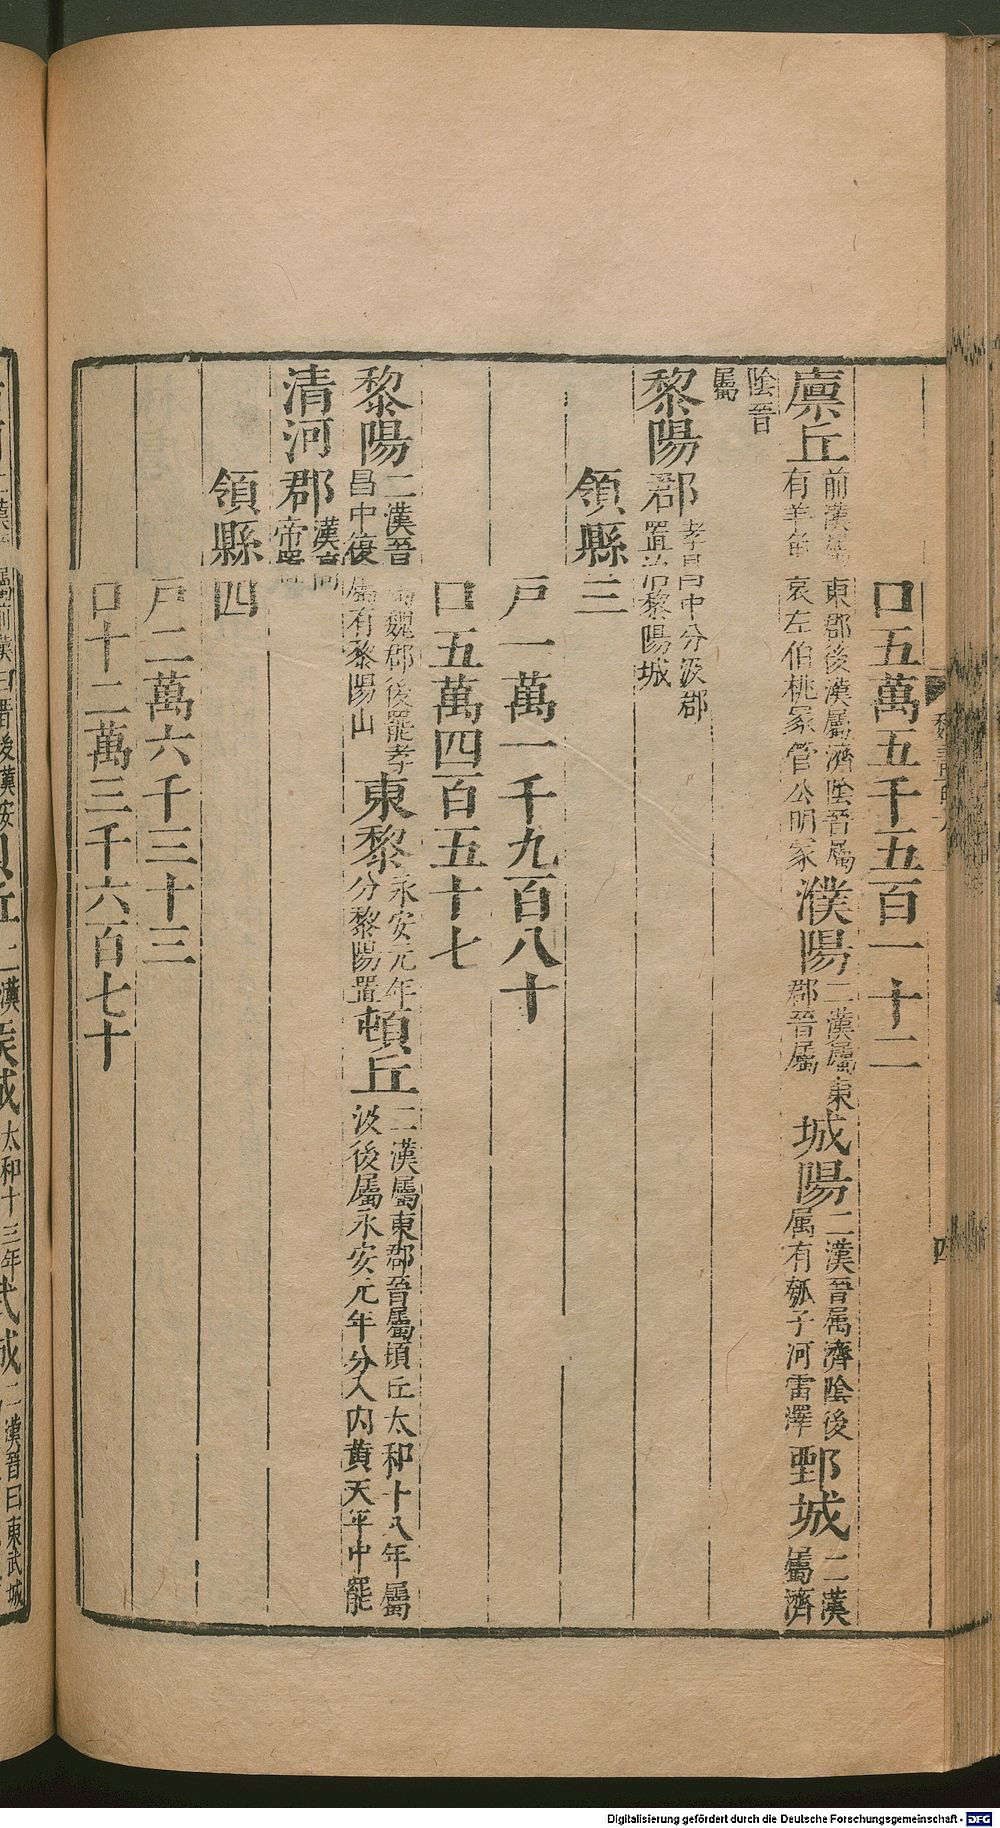 口五萬五千五百一十二
廪丘前漢屬東郡後漢屬濟陰晉屬有羊角哀左伯桃冢管公明冢濮陽二漢屬東郡晉屬城陽二漢晉属濟陰後属有瓠子河雷澤鄄城二漢屬濟
陰晉屬
黎陽郡孝昌中分汲郡置治黎陽城
領縣三
戸一萬一千九百八十
口五萬四百五十七
黎陽二漢晉屬魏郡後罷孝昌中復屬有黎陽山東黎永安元年分黎陽置頓丘二漢屬東郡晉屬頃丘太和十八年屬汲後屬永安元年分入内黄天平中罷
清河郡漢高帝置
領縣四
戸二萬六千三十三
口十二萬三千六百七十
四
Digitalisierung gefördert durch die Deutsche Forschungsgemeinschaft - DFG